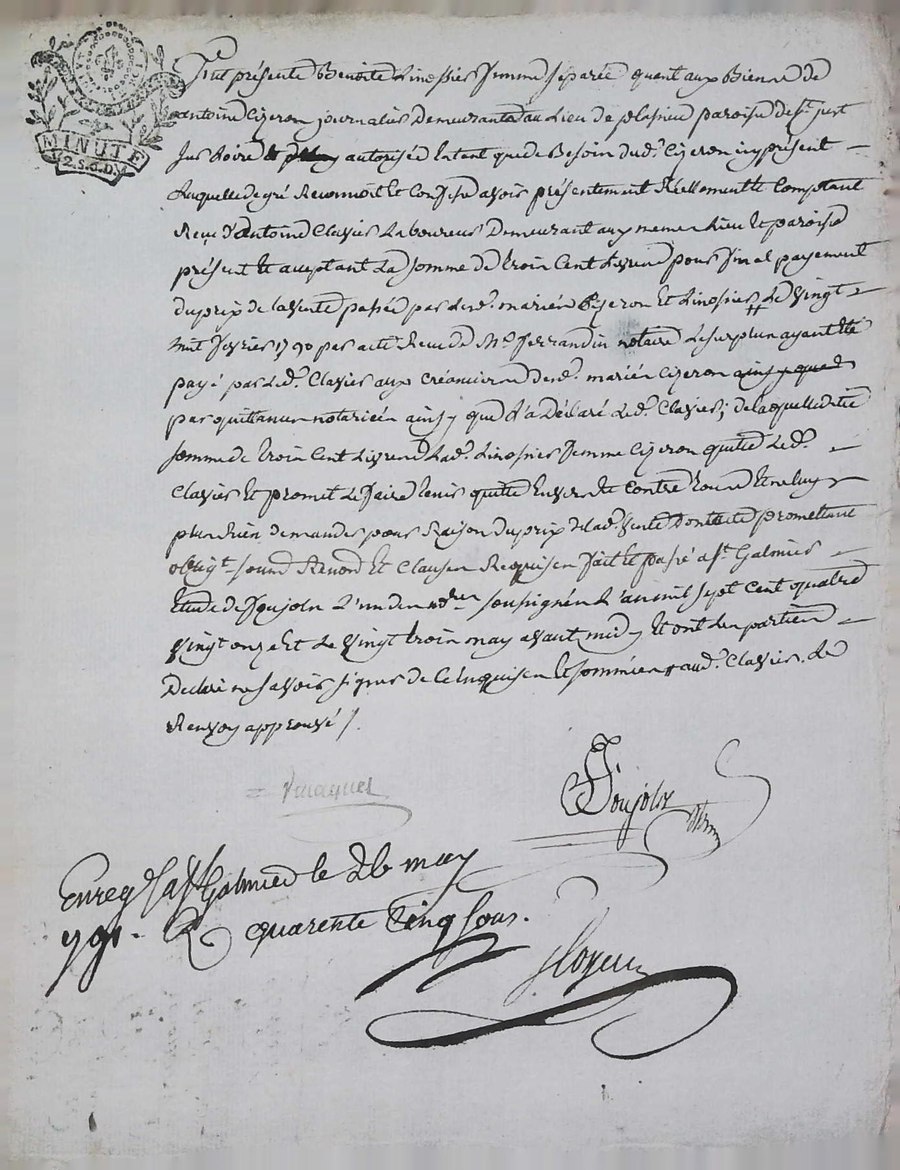 MINUTE
2.S.6.D.
Fut présente Benoite Linossier femme séparée quant aux Biens de
antoine Cizeron journalier Demeurante au Lieu de plasieu paroisse de st. just
sur Loire autorisée En tant que de Besoin dud. Cizeron icy présent
Laquelle de gré Reconnoit Et Confesse avoir présentement Réellement Et Comptant
Reçu d'antoine Clavier Laboureur Demeurant aux meme Lieu Et paroisse
présent Et acceptant La somme de trois Cent Livres pour final payement
du prix de La Vente passée par led. marien Cizeron Et Linossier Le Vingt
huit fevrier 1790 par acte Recu de Me. ferrandin notaire Le surplus ayant été
payé par Led. Clavier aux créanciers de marien Cizeron ainsy que
par quittances notariées ainsy que L'a Déclaré Led. Clavier; de laquelle dite
somme de trois Cent Livres Lad. Linossier femme Cizeron quitte Led.
Clavier Et promet Le faire tenir quitte Envers Et Contre tous Et ne luy
plus Rien demander pour Raison du prix de lad. Vente Dont acte promettant
obligt. sound Renond Et Clauses Requises fait Et passé a st. Galmier
Etude de foujols L'un des nres. soussignés L'an mil sept Cent quatre
Vingt onze Et Le Vingt trois may avant midy Et ont Les parties
Declaré ne savoir signer de Ce Enquises Et sommées aud. Clavier. Le
Renvoy approuvé /.
foujols
Enreg. a st Galmier le 26 may
791. R quarente Cinq sous.